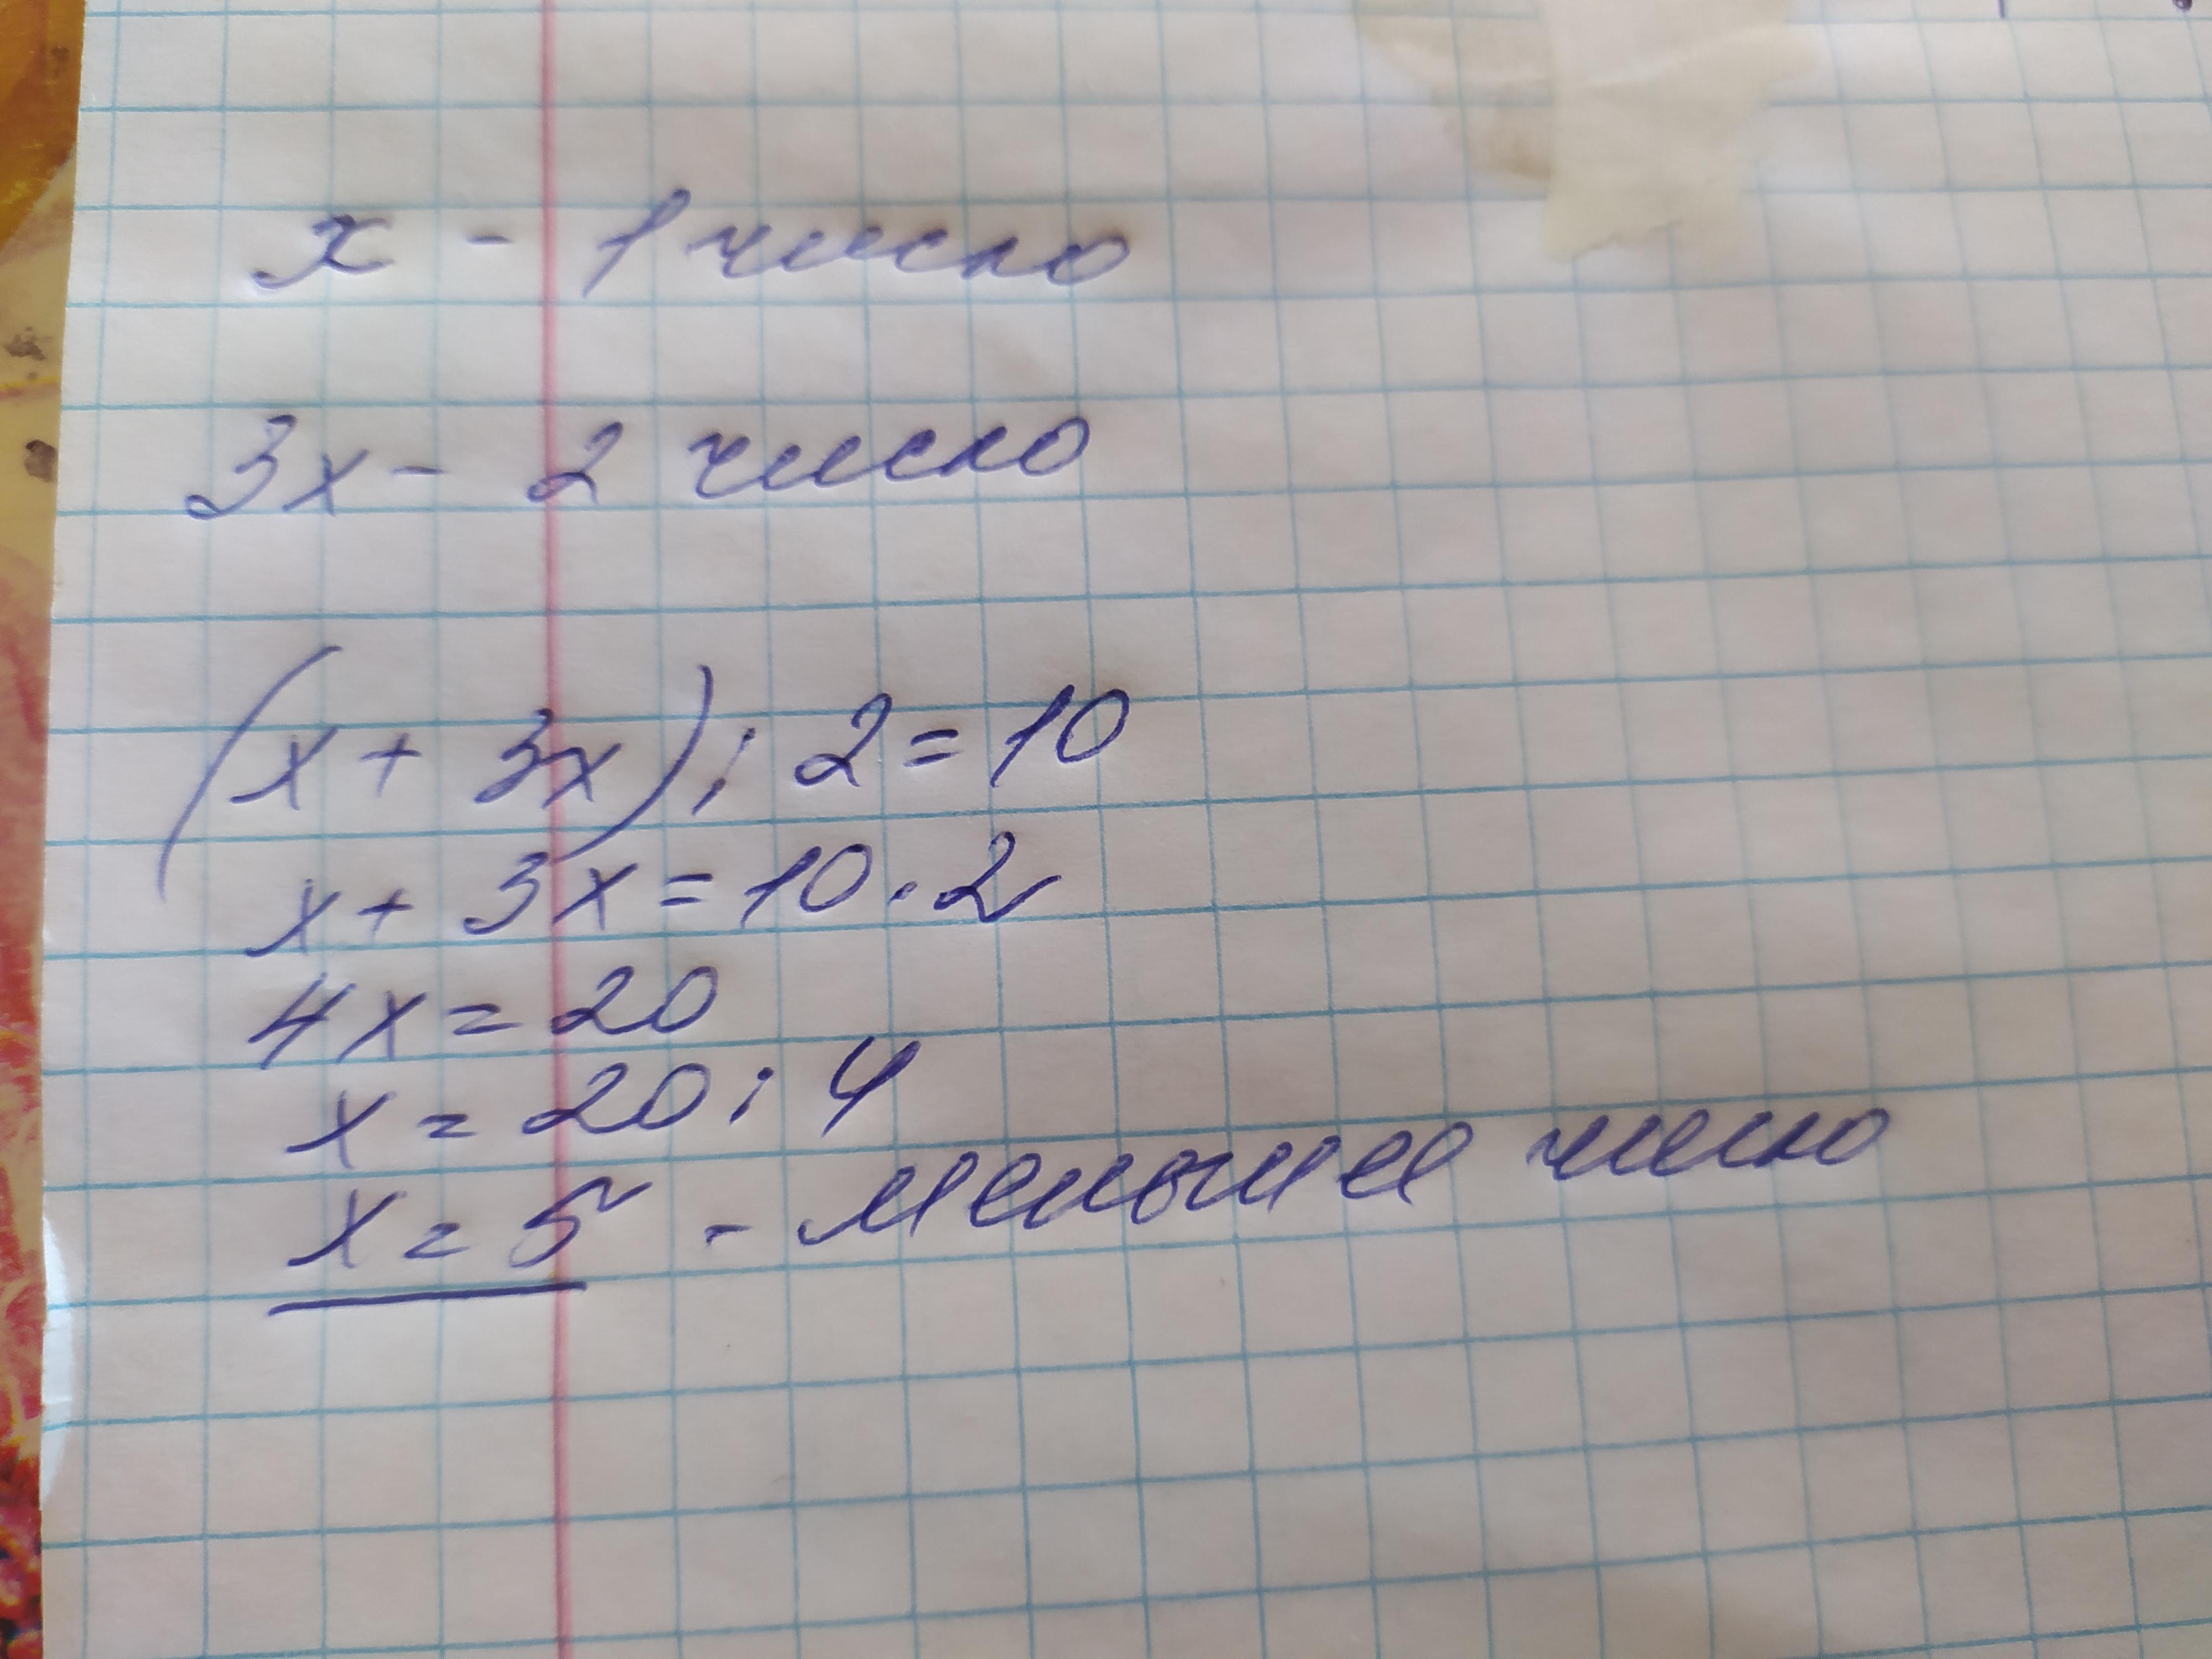 x - 1 число
3x - 2 число
(x + 3x) : 2 = 10
x + 3x = 10 · 2
4x = 20
x = 20 : 4
x = 5 - меньшее число